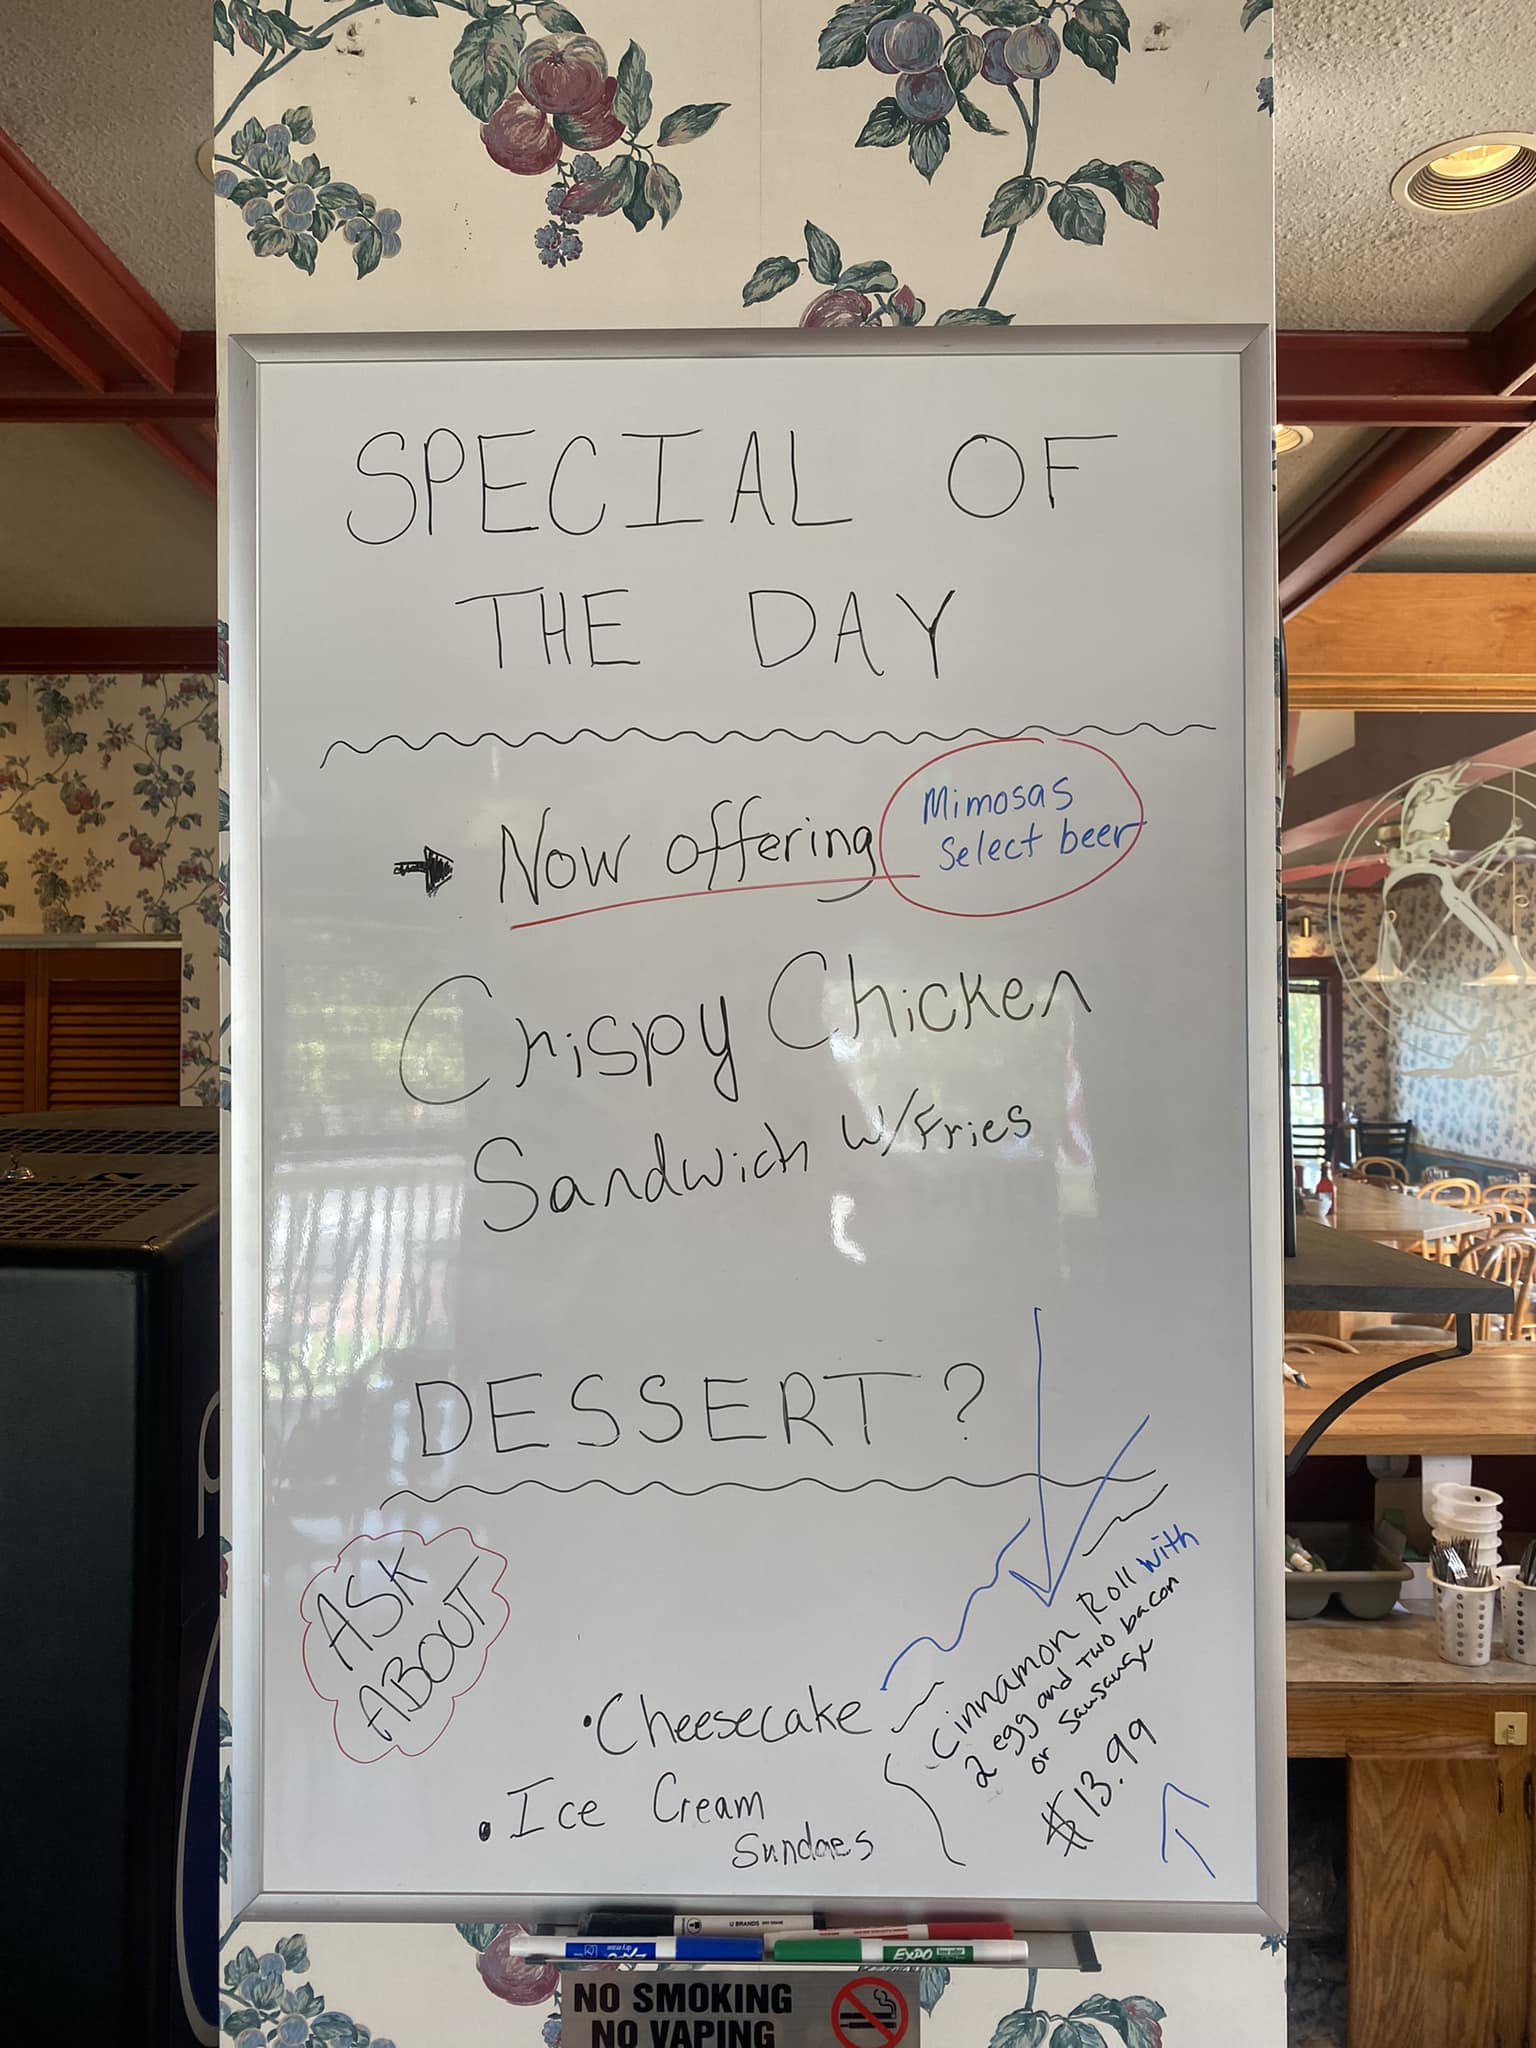 SPECIAL OF
THE DAY
Now offering
Mimosas
Select beer
Crispy Chicken
Sandwich w/Fries
DESSERT?
ASK
ABOUT
•Cheesecake
•Ice Cream
Sundaes
Cinnamon Roll with
2 egg and two bacon
or Sausauge
$13.99
U BRANDS
EXPO
NO SMOKING
NO VAPING